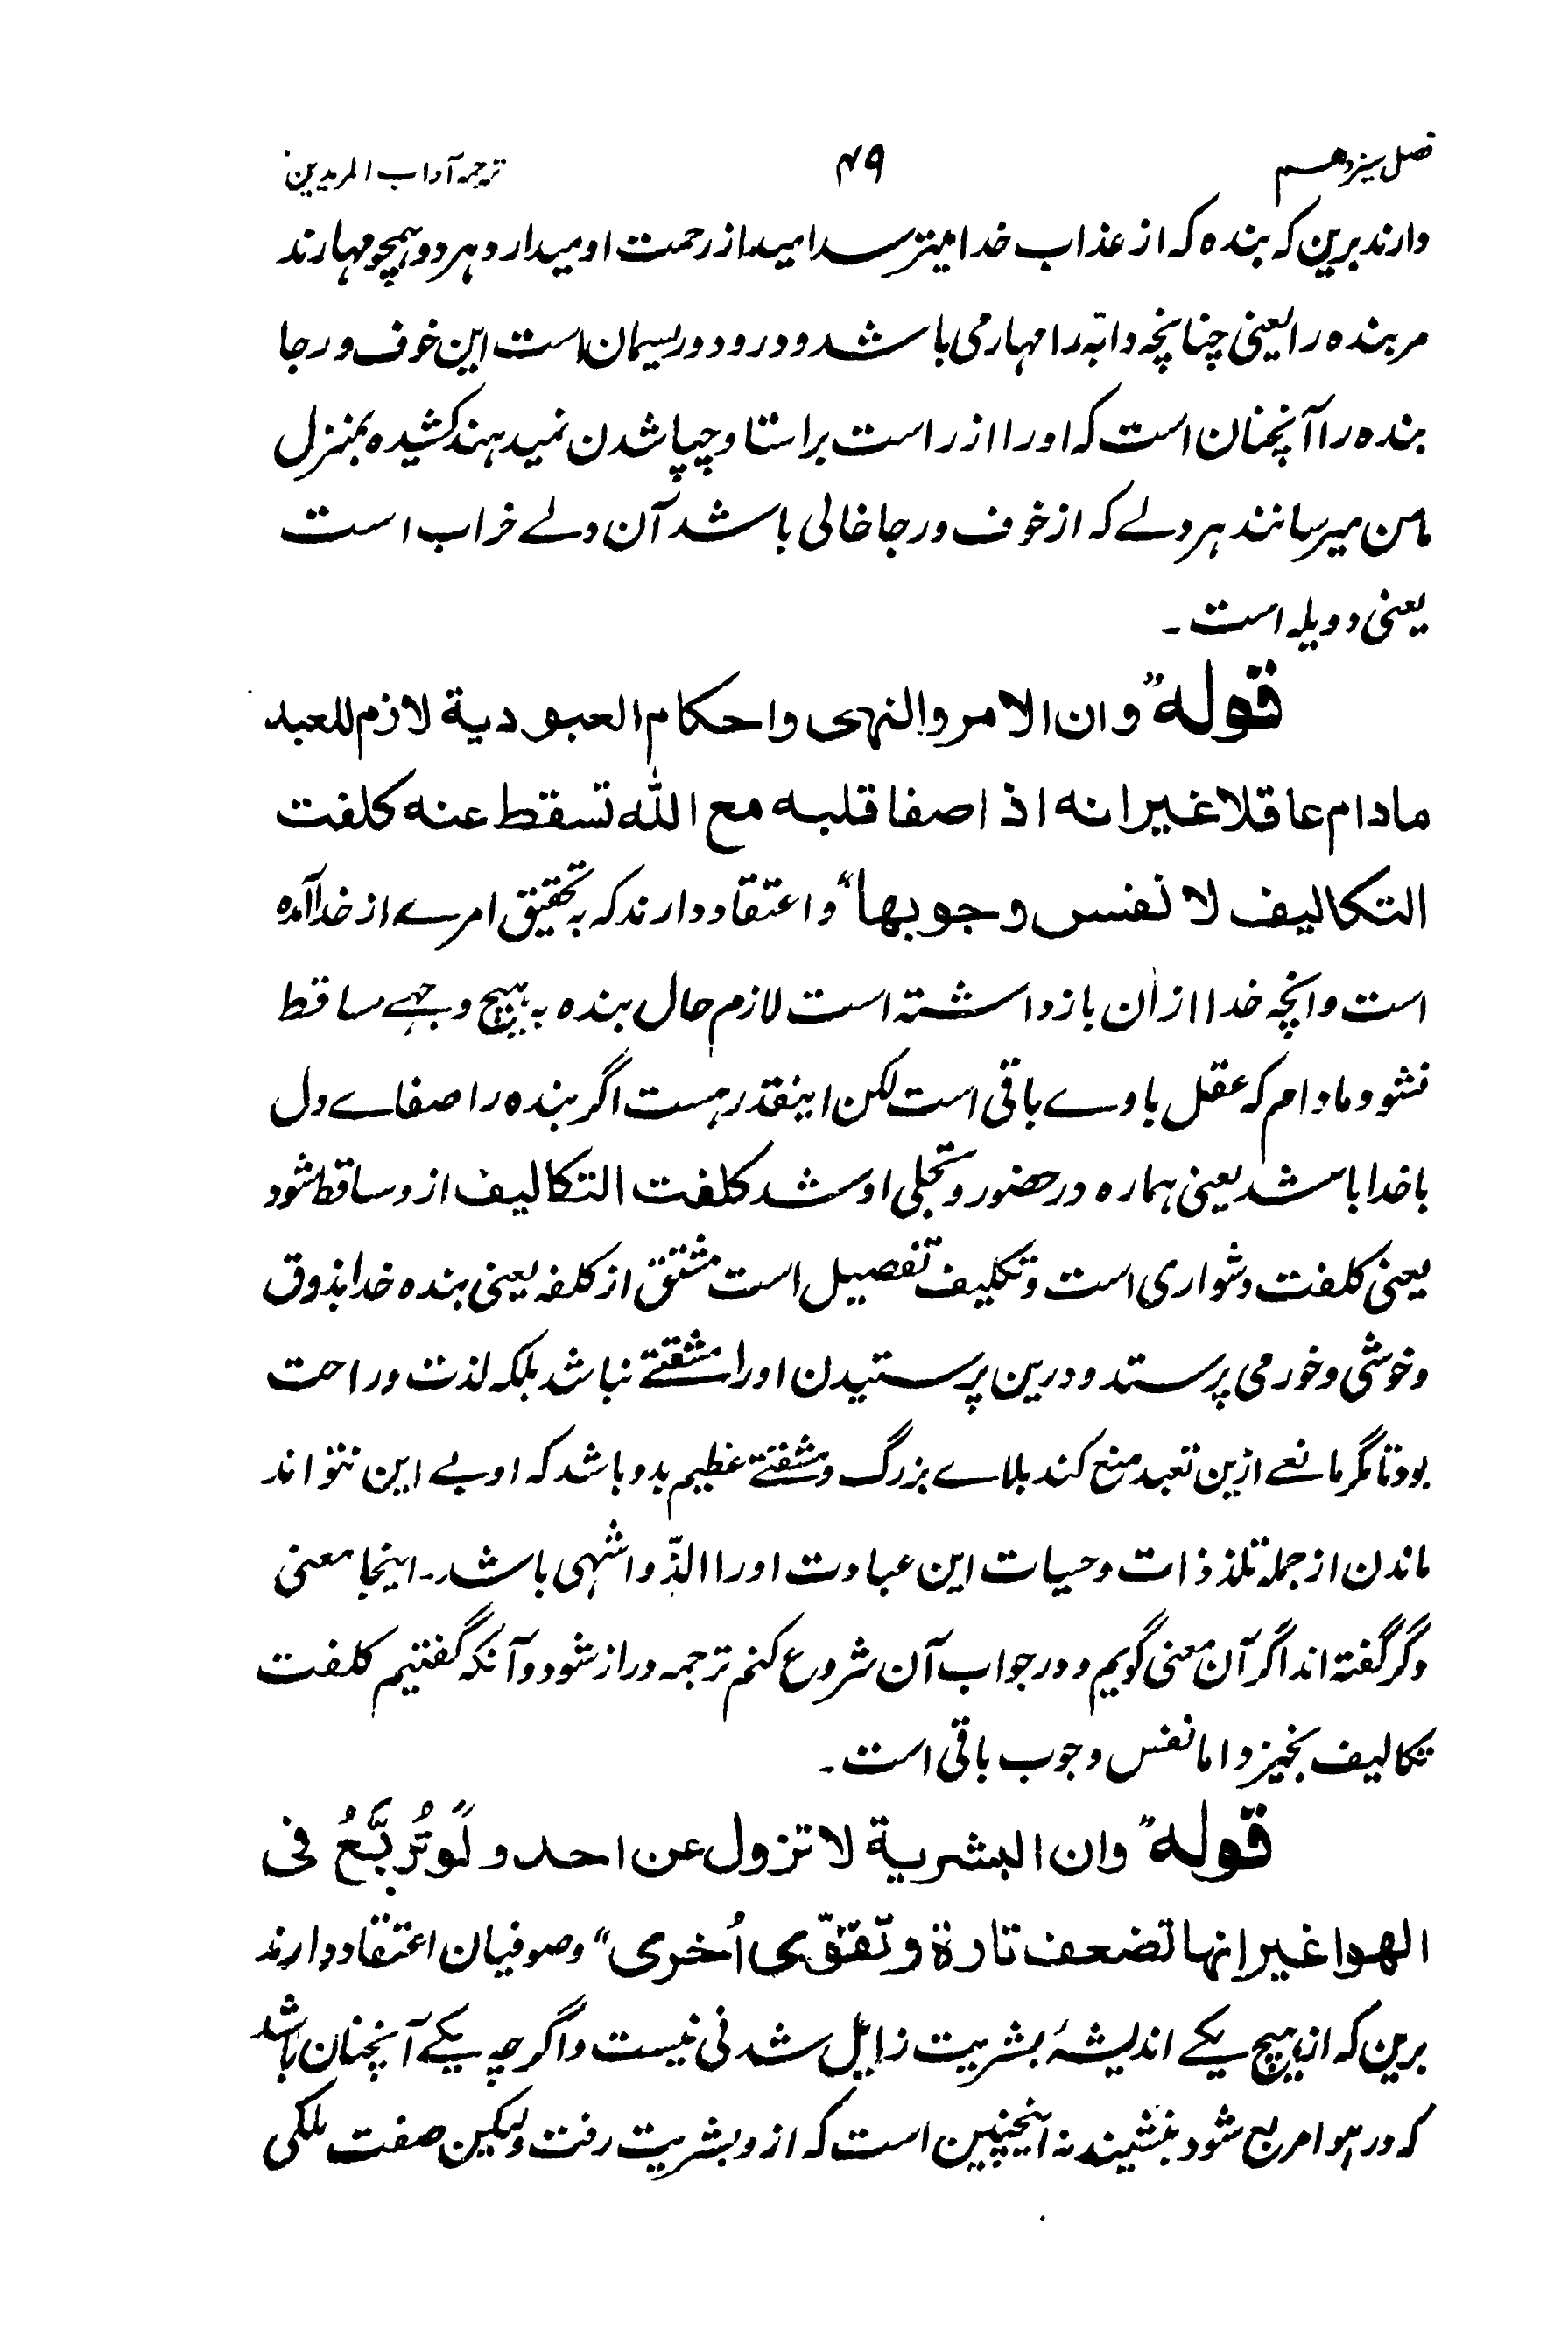 فصل سیزدهم ۴۹ ترجمه آداب المریدین
دارند برین که بنده که از عذاب خدا میترسد امید از رحمت او میدارد و هر دو همچو مهارند
مر بنده را یعنی چنانچه دابّه را مهار می باشد و درو دو ریسمان است این خوف و رجا
بنده را آنچنان است که او را از راست براستا و چپا شدن نمیدهند کشیده بمنزل
مامن میرسانند هر دلے که از خوف و رجا خالی باشد آن دلے خراب است
یعنی دو یله است ۔
قوله ”وان الامر والنهی واحکام العبودیة لازم للعبد
مادام عاقلا غیر انه اذ اصفا قلبه مع الله تسقط عنه کلفت
التکالیف لا نفس وجوبها“ و اعتقاد دارند که به تحقیق امرے از خدا آمده
است و انچه خدا از ان باز داشته است لازم حال بنده به هیچ وجهے ساقط
نشود مادام که عقل با وے باقی است لکن اینقدر هست اگر بنده را صفاے دل
با خدا باشد یعنی هماره در حضور و تجلی او شد کلفت التکالیف ازو ساقط شود
یعنی کلفت دشواری است و تکلیف تفصیل است مشتق از کلفه یعنی بنده خدا بذوق
و خوشی و خورمی پرستد و درین پرستیدن او را مشقتے نباشد بلکه لذت و راحت
بود تا مگر مانعے ازین تعبد منع کند بلاے بزرگ و مشقتے عظیم بدو باشد که او بے این نتواند
ماندن از جمله تلذذات و حیات این عبادت او را الذّ و اشهی باشد ۔ اینجا معنی
دگر گفته اند اگر آن معنی گویم و در جواب آن شروع کنم ترجمه دراز شود و آنکه گفتیم کلفت
تکالیف بخیزد اما نفس وجوب باقی است ۔
قوله ”وان البشریة لا تزول عن احد و لَو تُرَبَّعُ فی
الهوا غیر انها تضعف تارة و تقوّی اُخری“ و صوفیان اعتقاد دارند
برین که از هیچ یکے اندیشهٔ بشریت زایل شدنی نیست و اگر چه یکے آنچنان باشد
که در هوا مربع شود بنشیند نه اینچنین است که ازو بشریت رفت ولیکن صفت ملکی